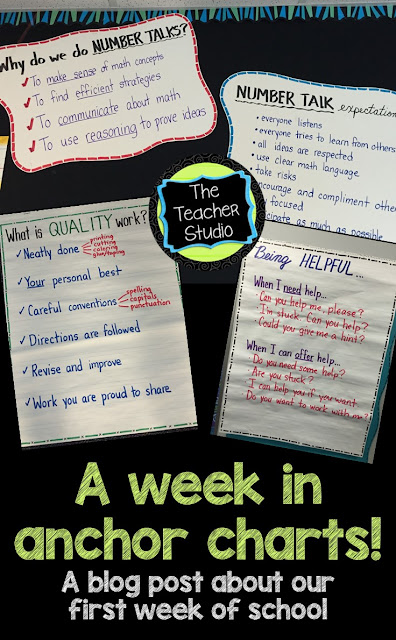 Why do we do NUMBER TALKS?
✓ To make sense of math concepts
✓ To find efficient strategies
✓ To communicate about math
✓ To use reasoning to prove ideas
NUMBER TALK expectation
• everyone listens
• everyone tries to learn from others
• all ideas are respected
• use clear math language
• take risks
encourage and compliment other
focused
as much as possible
The
Teacher
Studio
What is QUALITY work?
✓ Neatly done
printing
cutting
coloring
glue/taping
✓ Your personal best
✓ Careful conventions
spelling
capitals
punctuation
✓ Directions are followed
✓ Revise and improve
✓ Work you are proud to share
Being HELPFUL...
When I need help...
Can you help me, please?
I'm stuck. Can you help?
Could you give me a hint?
When I can offer help...
Do you need some help?
Are you stuck?
I can help you if you want.
Do you want to work with me?
A week in
anchor charts!
A blog post about our
first week of school